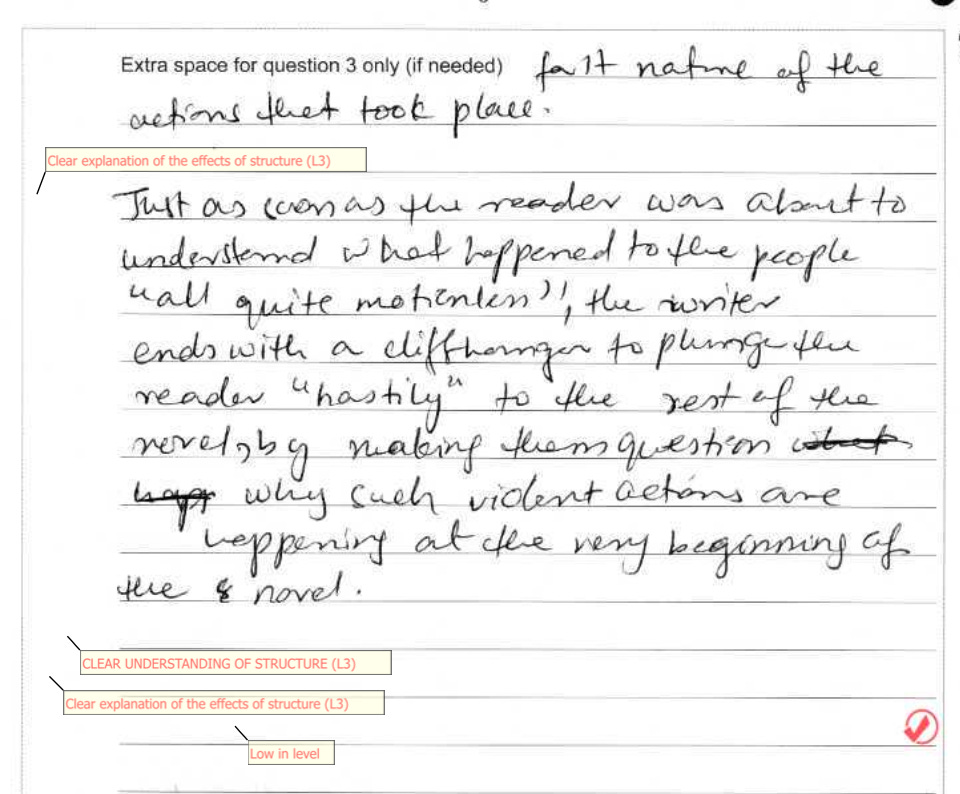 Extra space for question 3 only (if needed) fast nature of the
actions that took place.
Clear explanation of the effects of structure (L3)
Just as soon as the reader was about to
understand what happened to the people
"all quite motionless", the writer
ends with a cliffhanger to plunge the
reader "hastily" to the rest of the
novel, by making them question what
happ why such violent actions are
happening at the very beginning of
the novel.
CLEAR UNDERSTANDING OF STRUCTURE (L3)
Clear explanation of the effects of structure (L3)
Low in level